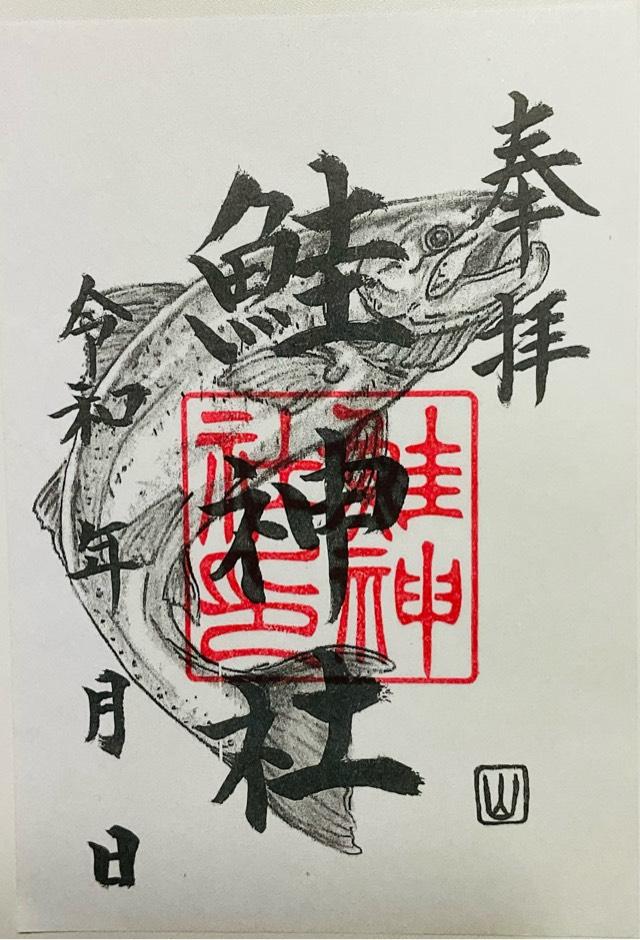 奉拝
鮭神社
鮭神
社印
令和 年 月 日
山